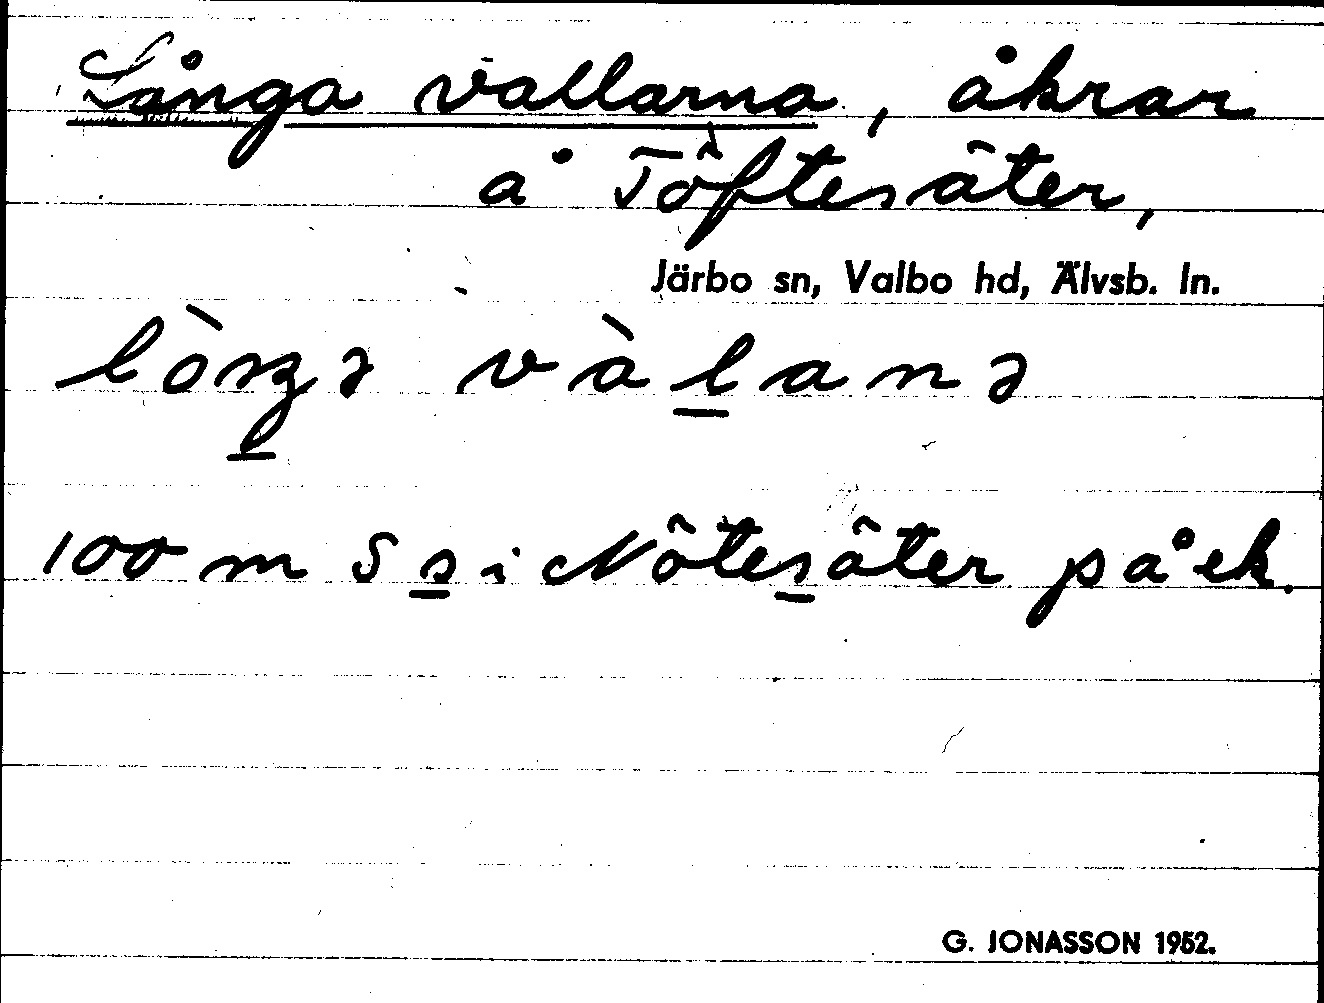 Långa vallarna, åkrar
å Töftesäter,
Järbo sn, Valbo hd, Älvsb. ln.
lòŋə vàlanə
100 m S s i Nötesäter på ek.
G. JONASSON 1952.